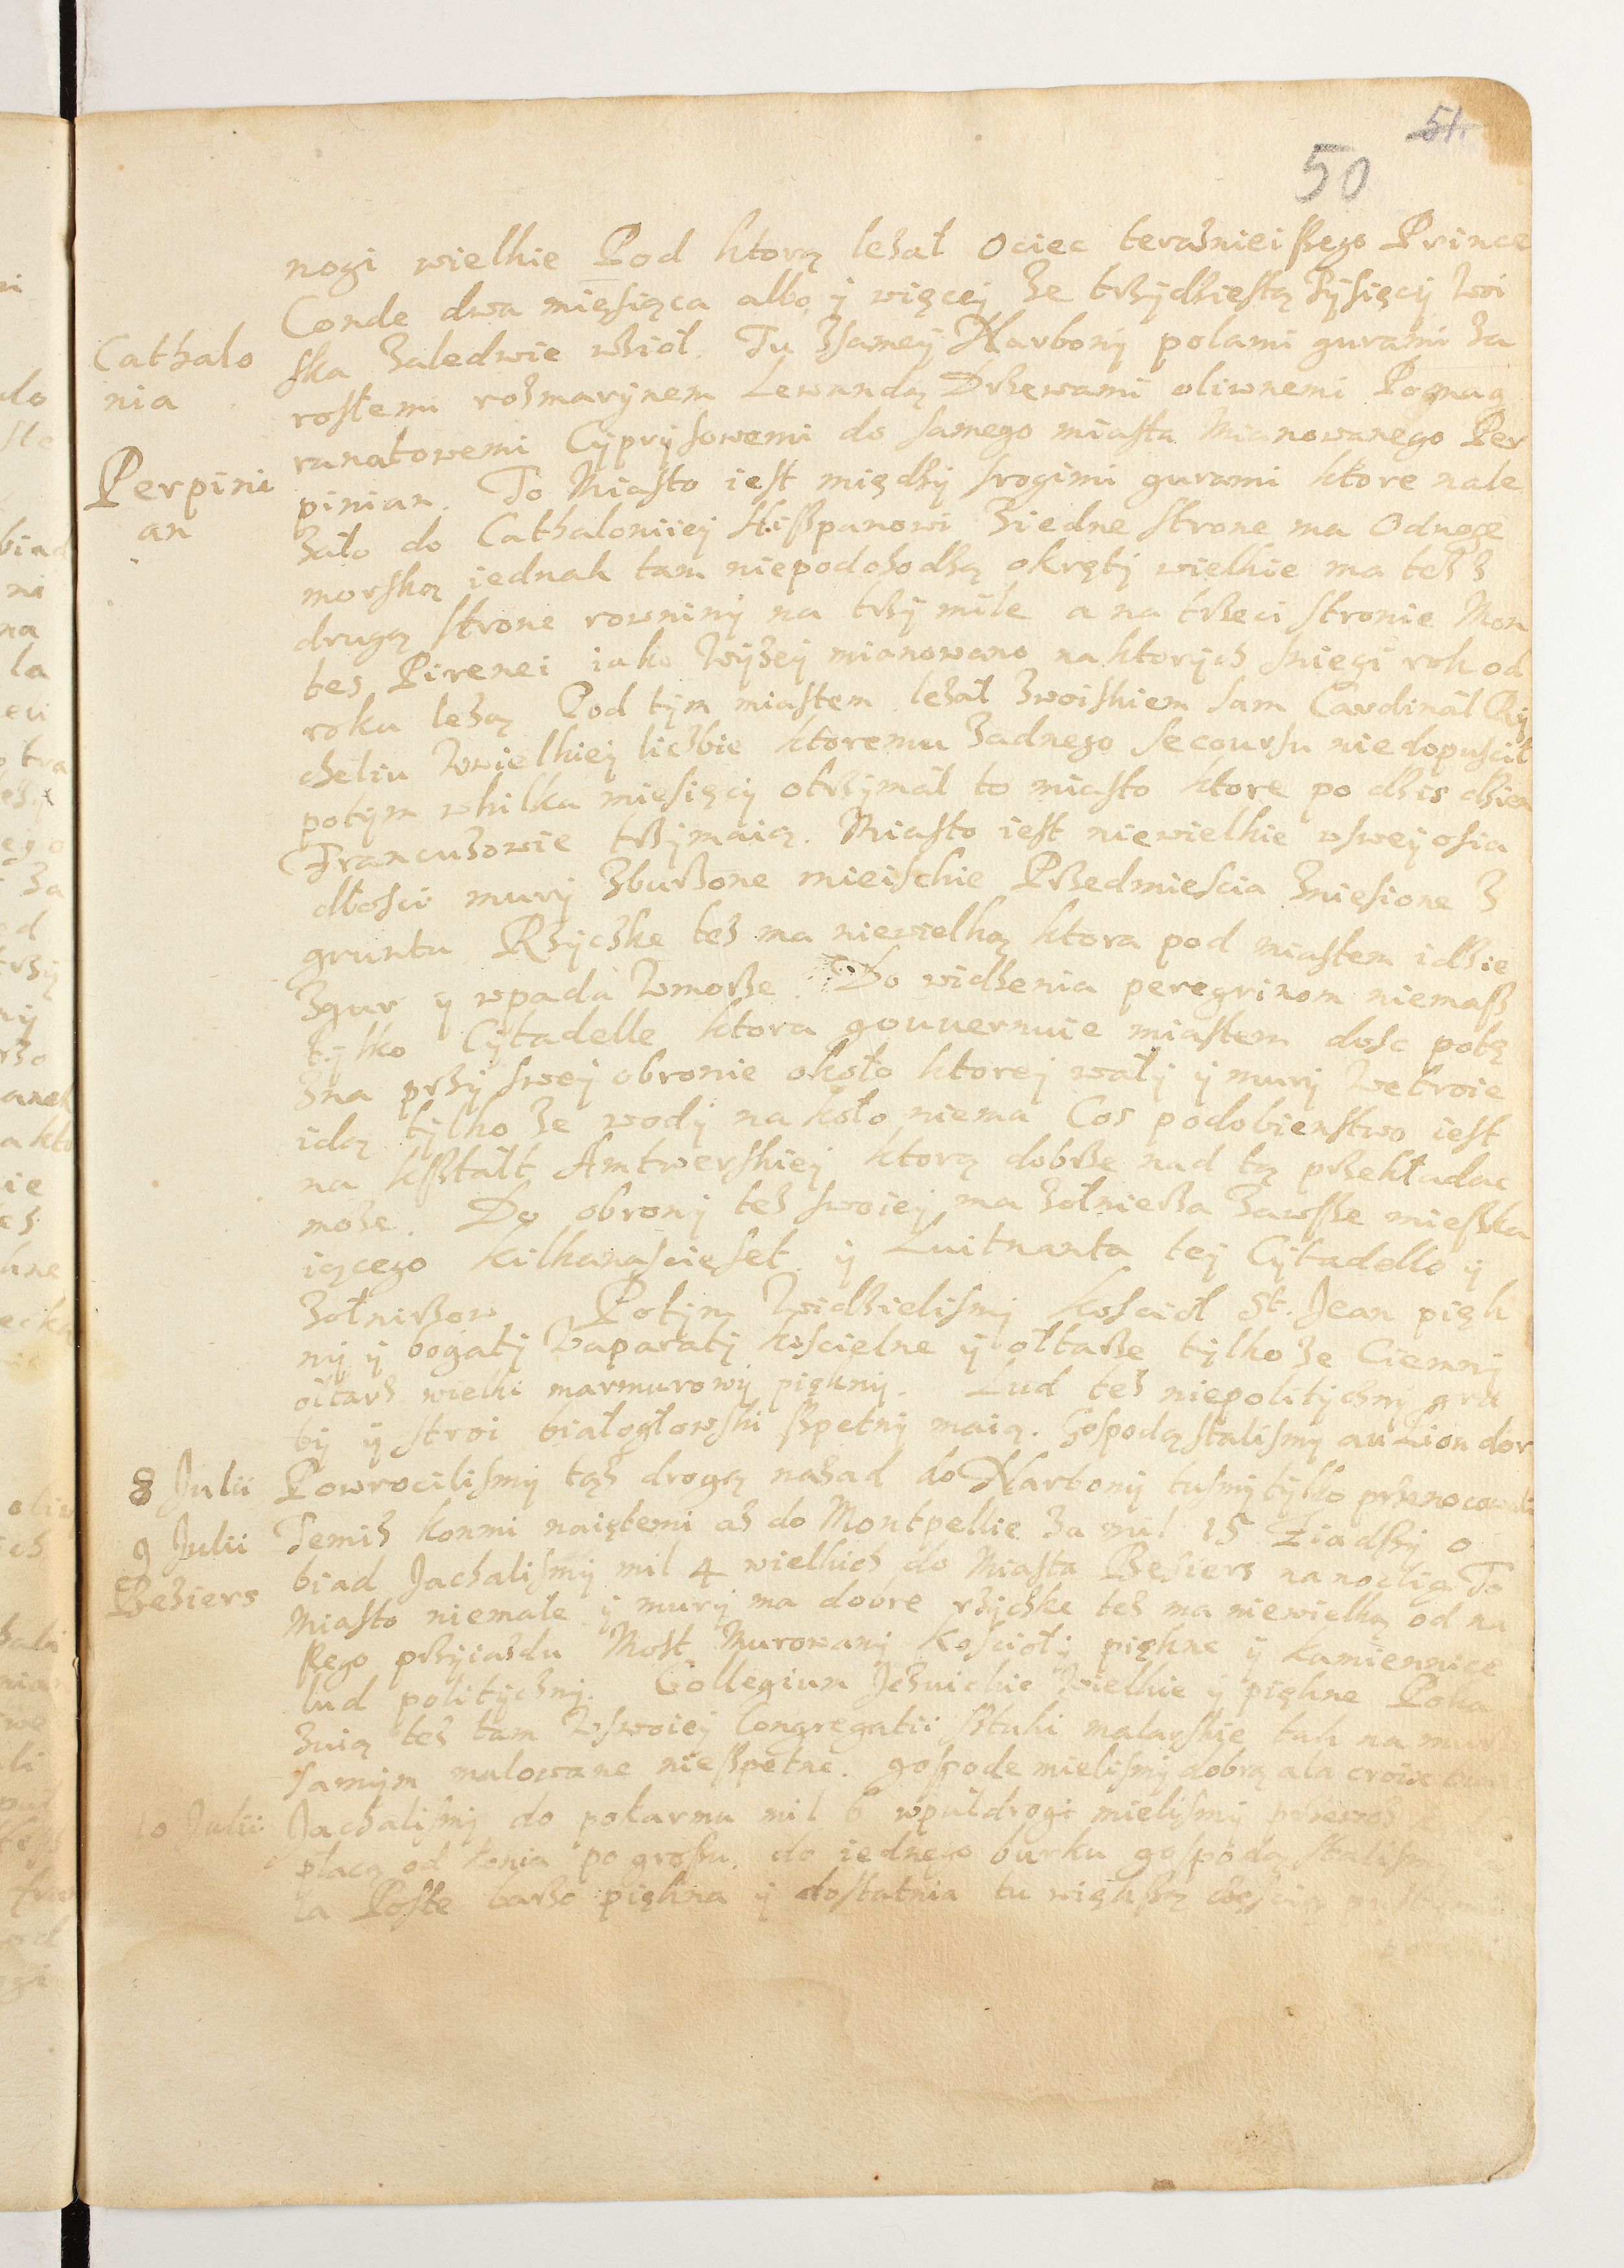 51
50
nogi wielkie Pod ktorą lezał Ociec terazniei ßego Prince
Conde dwa mięsiąca albo ÿ więceÿ Ze trzÿdziestą Tÿsięcÿ Woi
Cathalo
ska Zaledwie wziął. Tu Zsameÿ Narbonÿ polami gurami Za
nia
rosłemi rozmarÿnem Lewandą Drzewami oliwnemi Pogmag
ranatowemi Cÿprÿsowemi do samego miasta Mianowanego Per
Perpini
pinian. To Miasto iest międzÿ srogimi gurami ktore nale
an
Zało do Cathaloniieÿ Hißpanowi Ziedne strone ma Odnogę
morską iednak tam niepodchodzą okrętÿ wielkie ma tez z
drugą strone rowninÿ na trzÿ mile a na trzeci stronie Mon
tes Pirenei iako Wÿzeÿ mianowano naktorÿch sniegi rok od
roku lezą Pod tÿm miastem lezał Zwoiskiem sam Cardinał Rÿ
cheliu Wwielkieÿ liczbie ktoremu Zadnego secoursu niedopuscił
potÿm wkilka miesięcÿ otrzÿmał to miasto ktore po dzis dzien
Francuzowie trzÿmaią. Miasto iest niewielkie wsweÿ osia
dłosci murÿ Zburzone mieiskie Przedmiescia Zniesione Z
gruntu Rzÿczke tez ma niewielką ktora pod miastem idzie
Zgur ÿ wpada Wmorze. Do widzenia peregrinom niemaß
tÿlko Cÿtadelle ktora gouuernuie miastem dosc potę
Zna przÿ sweÿ obronie około ktoreÿ wałÿ ÿ murÿ Wetroie
idą tÿlko Ze wodÿ na koło niema Cos podobienstwo iest
na kßtałt Amtwerskieÿ ktorą dobrze nad tą przekładac
moze. Do obronÿ tez swoieÿ ma Zołnierza Zawsze mießka
iącego kilkanascięset ÿ Luitnanta teÿ Cÿtadello ÿ
Zołnirzow Potÿm Widzielismÿ kosciół St. Jean pięk
nÿ ÿ bogatÿ Waparatÿ koscielne ÿ ołtarze tÿlko Ze Ciemnÿ
ołtarz wielki marmurowÿ pięknÿ. Lud tez niepolitÿcznÿ gru
bÿ ÿ stroi białogłowski ßpetnÿ maią. Gospodą stalismÿ au Lion dor
8 Julii
Powrocilismÿ tąz drogą nazad do Narbonÿ tusmÿ tÿlko przenocowali
9 Julii
Temiz konmi naiętemi az do Montpellie Za mil 15 Ziadszÿ o
biad Jachalismÿ mil 4 wielkich do Miasta Besiers na noclig To
Beziers
Miasto niemałe ÿ murÿ ma dobre rzÿczke tez ma niewielką od na
ßego przÿiazdu Most Murowanÿ Kosciołÿ piękne ÿ kamiennice
lud politÿcznÿ. Collegium Jezuickie Wielkie ÿ piękne Poka
Zuią tez tam Wswoieÿ Congregatii sztuki malarskie tak na mur
samÿm malowane nießpetne. gospode mielismÿ dobrą ala croix
10 Julii
Jachalismÿ do pokarmu mil 6 wpuł drogi mielismÿ przewoz
płacą od konia po großu. do iednego burku gospodą stalismÿ
la Poste barzo piękna ÿ dostatnia tu większą częscią